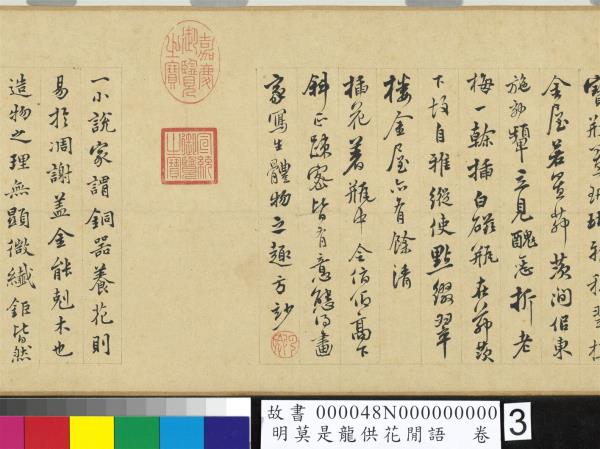 金屋若置茆茨間但東
施効顰立見醜态折老
梅一榦插白磁瓶在茆茨
下故自雅縱使點綴翠
樓金屋亦有餘清
插花著瓶中令俯仰高下
斜正疎密皆有意態得畫
家寫生體物之趣方妙
嘉慶御覽之寶
宣統御覽之寶
一小說家謂銅器養花則
易於凋謝蓋金能剋木也
造物之理無顯微纖鉅皆然
故書 000048N000000000 3
明莫是龍供花閒語 卷